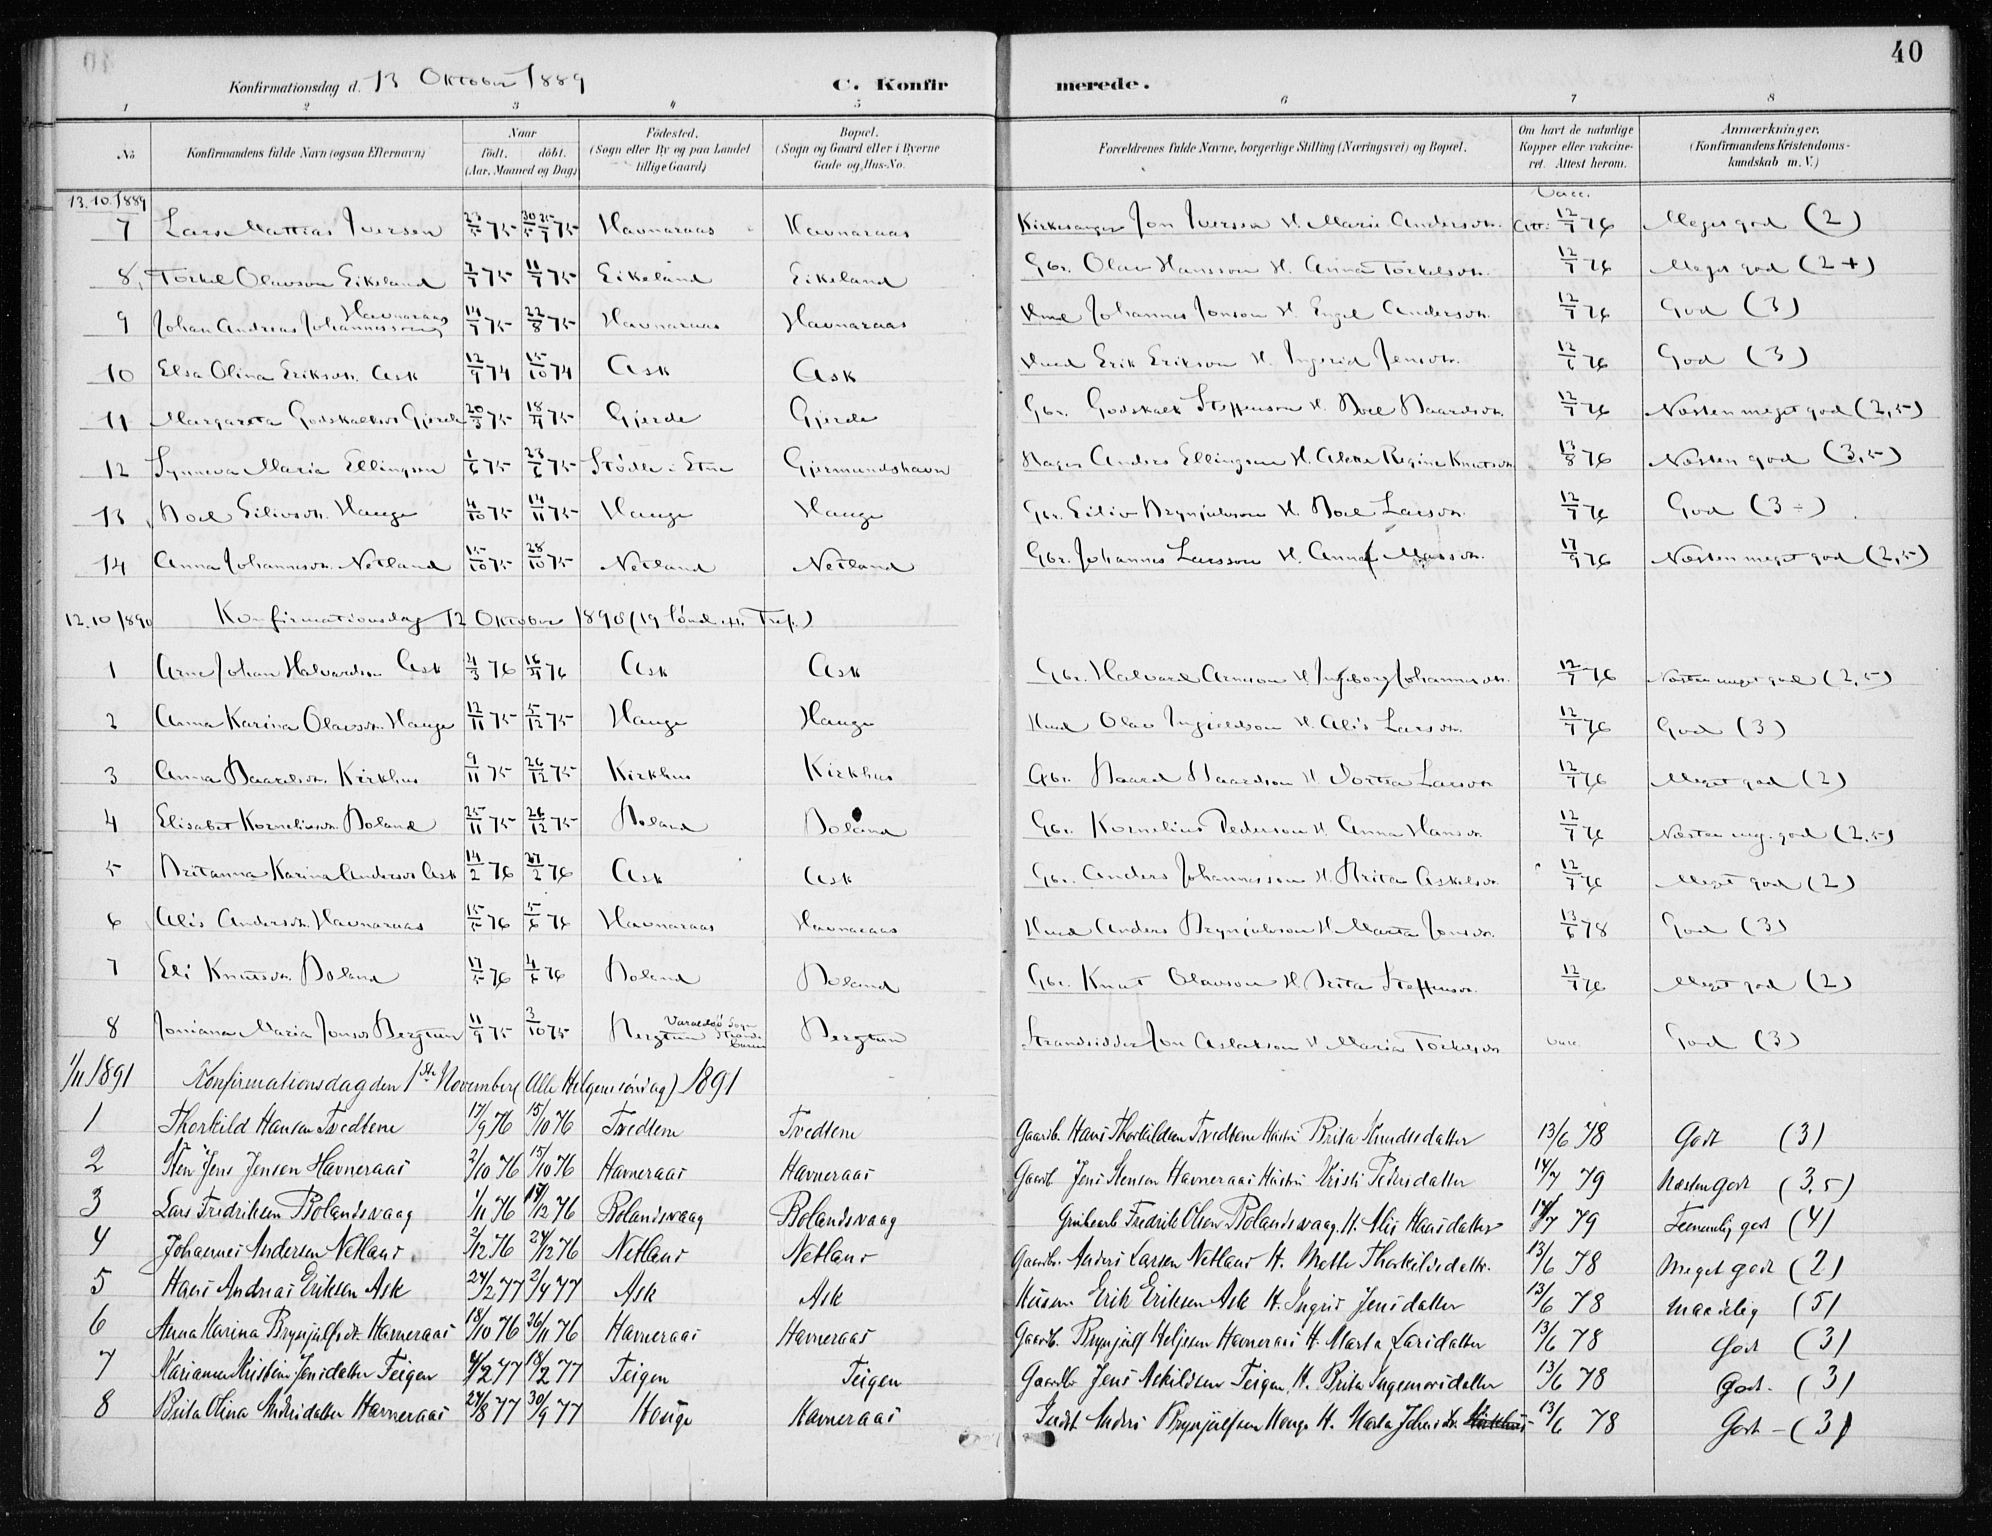 40
Konfirmationsdag d. 13 Oktober 1889 C. Konfirmerede.
1 2 3 4 5 6 7 8
No Konfirmandens fulde Navn (ogsaa Efternavn) Naar født. døbt. (Aar, Maaned og Dag) Fødested. (Sogn eller By og paa Landet tillige Gaard) Bopæl. (Sogn og Gaard eller i Byerne Gade og Hus-No. Forældrenes fulde Navne, borgerlige Stilling (Næringsvei) og Bopæl. Om havt de naturlige Kopper eller vakcineret. Attest herom. Anmærkninger, (Konfirmandens Kristendomskundskab m. V.)
13.10.1889 Vacc.
7 Lars Mattias Iversen 23/5 75 30/5 25/7 75 Havnaraas Havnaraas Kirkesanger Jon Iverssen H. Marie Andersdtr. Att. 12/7 76 Meget god (2)
8 Torkel Olavson Eikeland 7/7 75 11/7 75 Eikeland Eikeland Gbr. Olav Hansson H. Anna Torkelsdtr. 12/7 76 Meget god (2+)
9 Johan Andreas Johannesson Havnaraas 14/7 75 22/8 75 Havnaraas Havnaraas Hmd Johannes Jonson H. Engel Andersdtr. 12/7 76 God (3)
10 Elsa Olina Eriksdtr. Ask 12/9 74 15/10 74 Ask Ask Hmd Erik Erikson H. Ingerid Jensdtr. 12/6 76 God (3)
11 Margareta Godskalksdr Gjerde 20/3 75 18/4 75 Gjerde Gjerde Gbr. Godskalk Steffenson H. Boel Baardsdtr. 12/7 76 Næsten meget god (2,5)
12 Synneva Maria Ellingsen 1/6 75 23/6 75 Støde i Etne Gjermundshavn Anders Ellingsen H. Alette Regine Knutsdtr 13/8 76 Næsten god (3,5)
13 Boel Eilivsdtr. Hauge 4/10 75 14/11 75 Hauge Hauge Gbr. Eiliv Brynjulvson H. Boel Larsdtr. 12/7 76 God (3÷)
14 Anna Johannesdtr. Netland 15/10 75 28/10 75 Netland Netland Gbr. Johannes Larsson H. Anna Masdtr. 17/9 76 Næsten meget god (2,5)
12.10 1890 Konfirmationsdag 12 Oktober 1890 (19 Sønd. e. Tref.)
1 Arne Johan Halvardson Ask 4/3 76 16/4 76 Ask Ask Gbr. Halvard Arneson H. Ingeborg Johannesdtr. 12/7 76 Næsten meget god (2,5)
2 Anna Karina Olavsdtr. Hauge 12/11 75 5/12 75 Hauge Hauge Hmd Olav Ingjeldson H. Alis Larsdtr. 12/7 76 God (3)
3 Anna Baardsdtr. Kirkhus 9/11 75 26/12 75 Kirkhus Kirkhus Gbr. Baard Baardson H. Dortea Larsdtr 12/7 76 Meget god (2)
4 Elisabet Kornelisdtr. Boland 25/11 75 26/12 75 Boland Boland Gbr. Kornelius Pederson H. Anna Hansdtr. 12/7 76 Næsten meg. god (2,5)
5 Britanna Karina Andersdr Ask 14/2 76 27/2 76 Ask Ask Gbr. Anders Johannesson H. Brita Askelsdtr. 12/7 76 Meget god (2)
6 Alis Andersdtr. Havnaraas 15/5 76 5/6 76 Havnaraas Havnaraas Hmd Anders Brynjulvson H. Marta Jonsdtr. 13/6 78 God (3)
7 Eli Knutsdtr. Boland 17/5 76 4/6 76 Boland Boland Gbr. Knut Olavson H. Brita Steffensdtr. 12/7 76 Meget god (2)
8 Joniana Maria Jonsdr Bergtun 11/9 75 3/10 75 Bergtun Varaldsø Sogn Bergtun Strandsidder Jon Aslakson H. Maria Torkelsdtr vacc. God (3)
1/11 1891 Konfirmationsdag den 1ste November (Alle Helgens søndag) 1891
1 Thorkild Hansen Tvedtene 17/9 76 15/10 76 Tvedtene Tvedtene Gaardb. Hans Thorkildsen Tvedtene Hustru Brita Knudsdatter 13/6 78 Godt (3)
2 Sten Jens Jensen Havneraas 2/10 76 15/10 76 Havneraas Havneraas Gaardb Jens Stensen Havneraas Hustru Kristi Pedersdatter 14/7 79 Næsten godt (3,5)
3 Lars Fredriksen Bolandsvaag 1/11 76 17/12 76 Bolandsvaag Bolandsvaag Fredrik Olsen Bolandsvaag. H. Alis Hansdatter 14/7 79 Temmelig godt (4)
4 Johannes Andersen Netland 2/12 76 24/12 76 Netland Netland Gaardbr. Anders Larsen Netland H. Mette Thorkildsdattr. 13/6 78 Meget godt (2)
5 Hans Andreas Eriksen Ask 24/2 77 2/4 77 Ask Ask Husm. Erik Eriksen Ask H. Ingrid Jensdatter 13/6 78 Maadelig (5)
6 Anna Karina Brynjulfsdt. Havneraas 18/10 76 26/11 76 Havneraas Havneraas Gaardb. Brynjulf Heljesen Havneraas H. Marta Larsdatter 13/6 78 Godt (3)
7 Marianne Kristine Jensdatter Teigen 4/2 77 18/2 77 Teigen Teigen Gaardb Jens Askildsen Teigen, H. Brita Ingemorsdatter 13/6 78 Godt. (3)
8 Brita Olina Andersdatter Havneraas 27/8 77 30/9 77 Houge Havneraas Inderst Anders Brynjulfsen Houge H. Marta 13/6 78 Godt - (3)